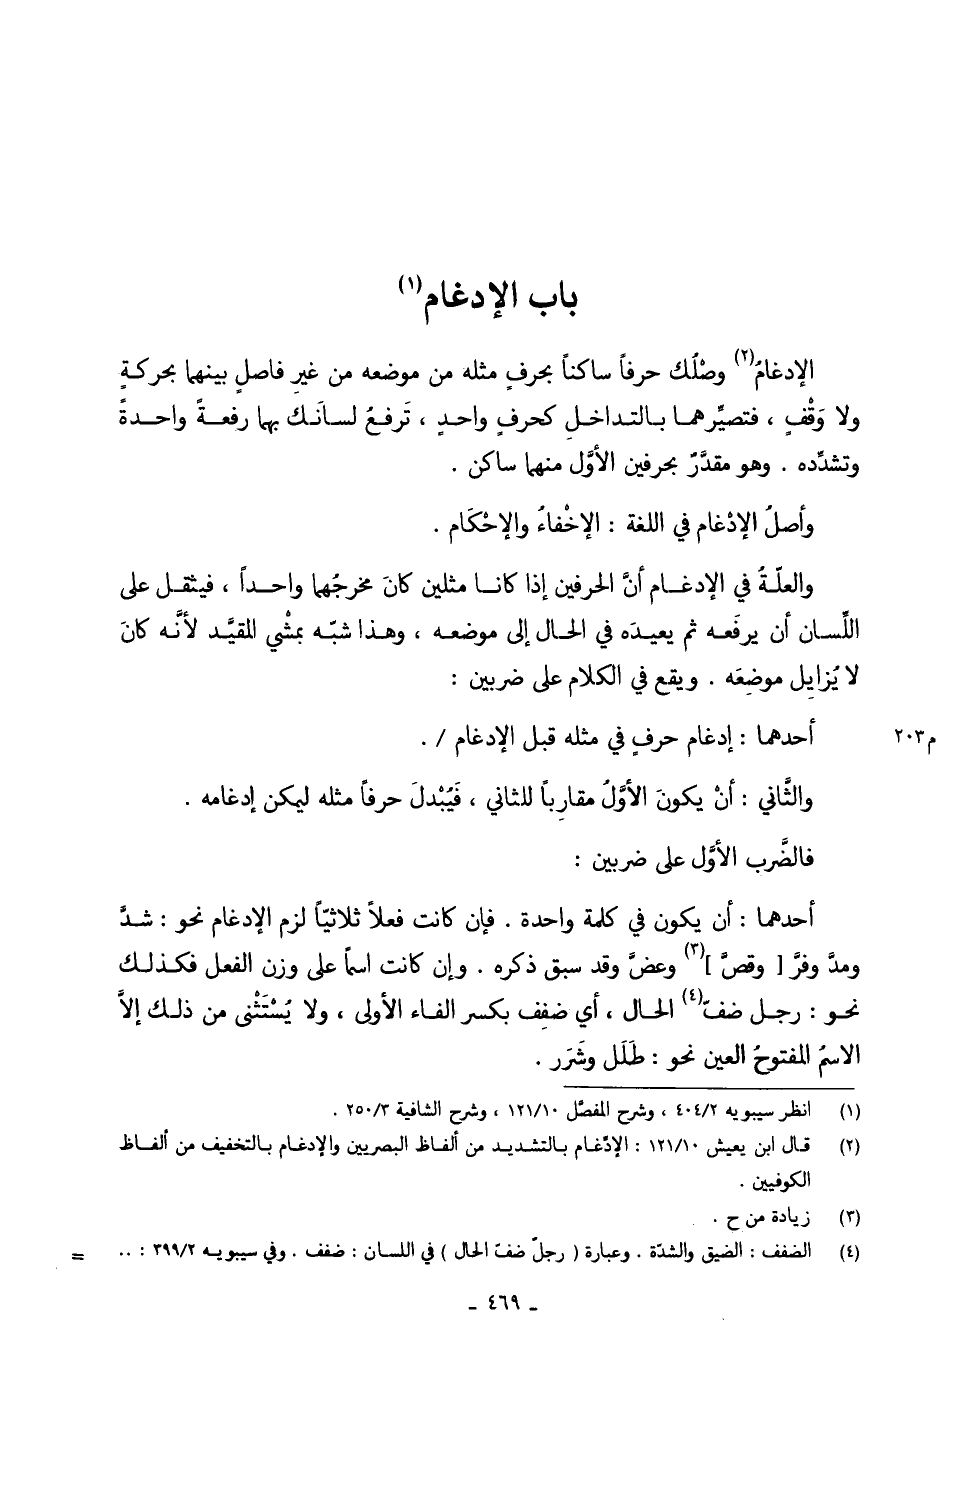 باب الإدغام(١)
الإدغامُ(٢) وصْلُك حرفاً ساكناً بحرفٍ مثله من موضعه من غيرِ فاصلٍ بينهما بحركةٍ
ولا وَقْفٍ ، فتصيِّرهما بالتداخلِ كحرفٍ واحدٍ ، تَرفعُ لسانَك بهما رفعةً واحدةً
وتشدِّده . وهو مقدَّرٌ بحرفين الأوَّل منهما ساكن .
وأصلُ الإدْغام في اللغة : الإخْفاءُ والإحْكَام .
والعلّةُ في الإدغام أنَّ الحرفين إذا كانا مثلين كانَ مخرجُهما واحداً ، فيثقل على
اللِّسان أن يرفَعه ثم يعيدَه في الحال إلى موضعه ، وهذا شبّه بمشْي المقيَّد لأنَّه كانَ
لا يُزايِل موضِعَه . ويقع في الكلام على ضربين :
أحدهما : إدغام حرفٍ في مثله قبل الإدغام / . م٢٠٣
والثَّاني : أنْ يكونَ الأوَّلُ مقارِباً للثاني ، فَيُبْدلَ حرفاً مثله ليمكن إدغامه .
فالضَّرب الأوَّل على ضربين :
أحدهما : أن يكون في كلمة واحدة . فإن كانت فعلاً ثلاثيّاً لزم الإدغام نحو : شدَّ
ومدَّ وفرَّ [ وقصَّ ](٣) وعضَّ وقد سبق ذكره . وإن كانت اسماً على وزن الفعل فكذلك
نحو : رجل ضفّ(٤) الحال ، أي ضفِف بكسر الفاء الأولى ، ولا يُسْتَثْنى من ذلك إلاَّ
الاسمُ المفتوحُ العين نحو : طَلَل وشَرَر .
(١) انظر سيبويه ٤٠٤/٢ ، وشرح المفصّل ١٢١/١٠ ، وشرح الشافية ٢٥٠/٣ .
(٢) قال ابن يعيش ١٢١/١٠ : الإدّغام بالتشديد من ألفاظ البصريين والإدغام بالتخفيف من ألفاظ
الكوفيين .
(٣) زيادة من ح .
(٤) الضفف : الضيق والشدّة . وعبارة ( رجلٌ ضفّ الحال ) في اللسان : ضفف . وفي سيبويه ٣٩٩/٢ : .. =
- ٤٦٩ -